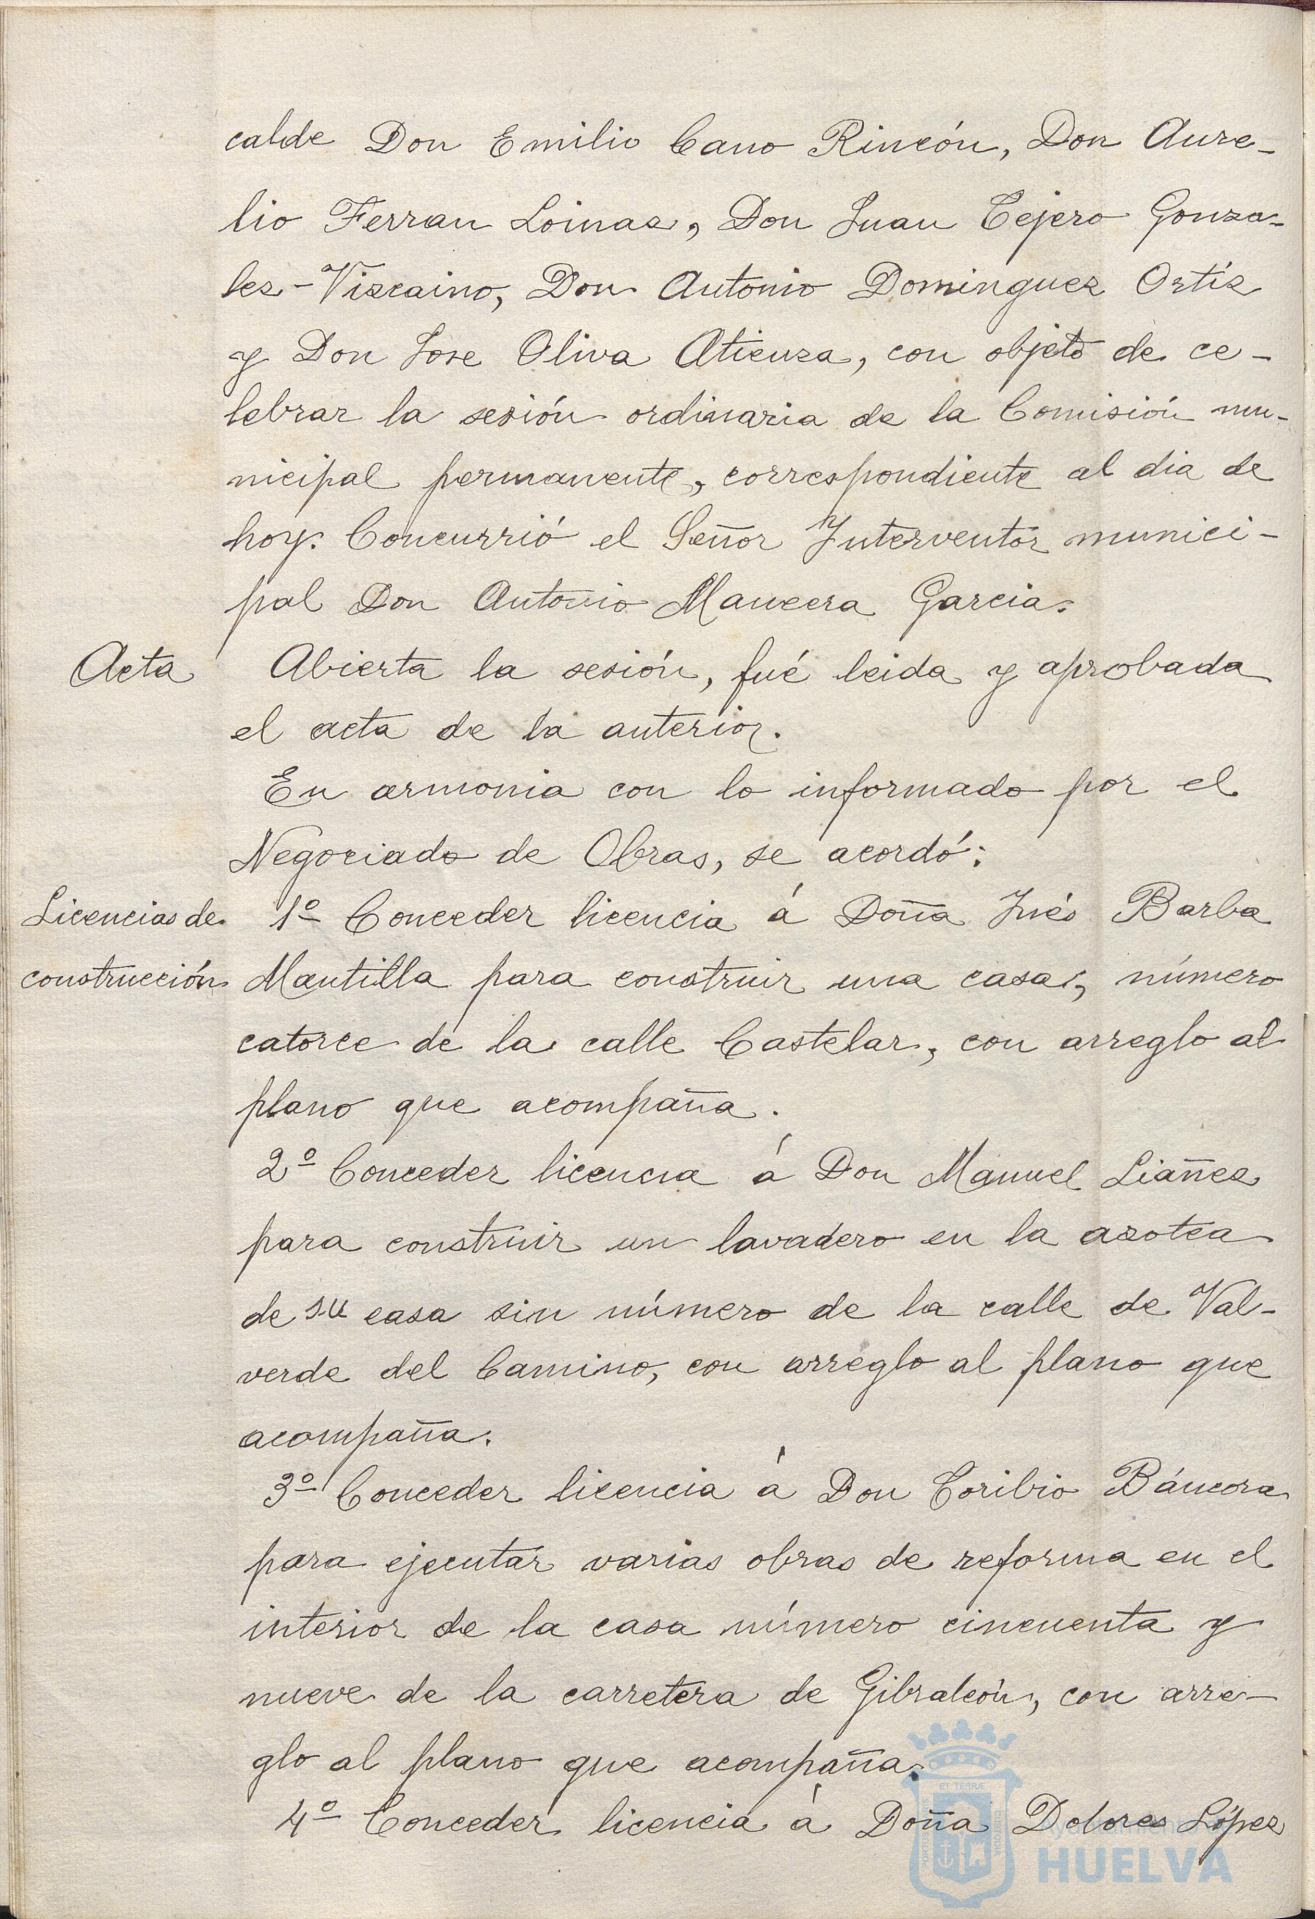 calde Don Emilio Cano Rincón, Don Aure-
lio Ferran Loinaz, Don Juan Tejero Gonza-
lez-Vizcaino, Don Antonio Dominguez Ortíz
y Don Jose Oliva Atienza, con objeto de ce-
lebrar la sesión ordinaria de la Comisión mu-
nicipal permanente, correspondiente al dia de
hoy. Concurrió el Señor Interventor munici-
pal Don Antonio Mancera Garcia.
Acta
Abierta la sesión, fué leida y aprobada
el acta de la anterior.
En armonia con lo informado por el
Negociado de Obras, se acordó:
Licencias de
construcción
1º Conceder licencia á Doña Inés Barba
Mantilla para construir una casa, número
catorce de la calle Castelar, con arreglo al
plano que acompaña.
2º Conceder licencia á Don Manuel Liañez
para construir un lavadero en la azotea
de su casa sin número de la calle de Val-
verde del Camino, con arreglo al plano que
acompaña.
3º Conceder licencia á Don Toribio Báncora
para ejecutar varias obras de reforma en el
interior de la casa número cincuenta y
nueve de la carretera de Gibraleón, con arre-
glo al plano que acompaña.
4º Conceder licencia á Doña Dolores López
Ayuntamiento de
HUELVA